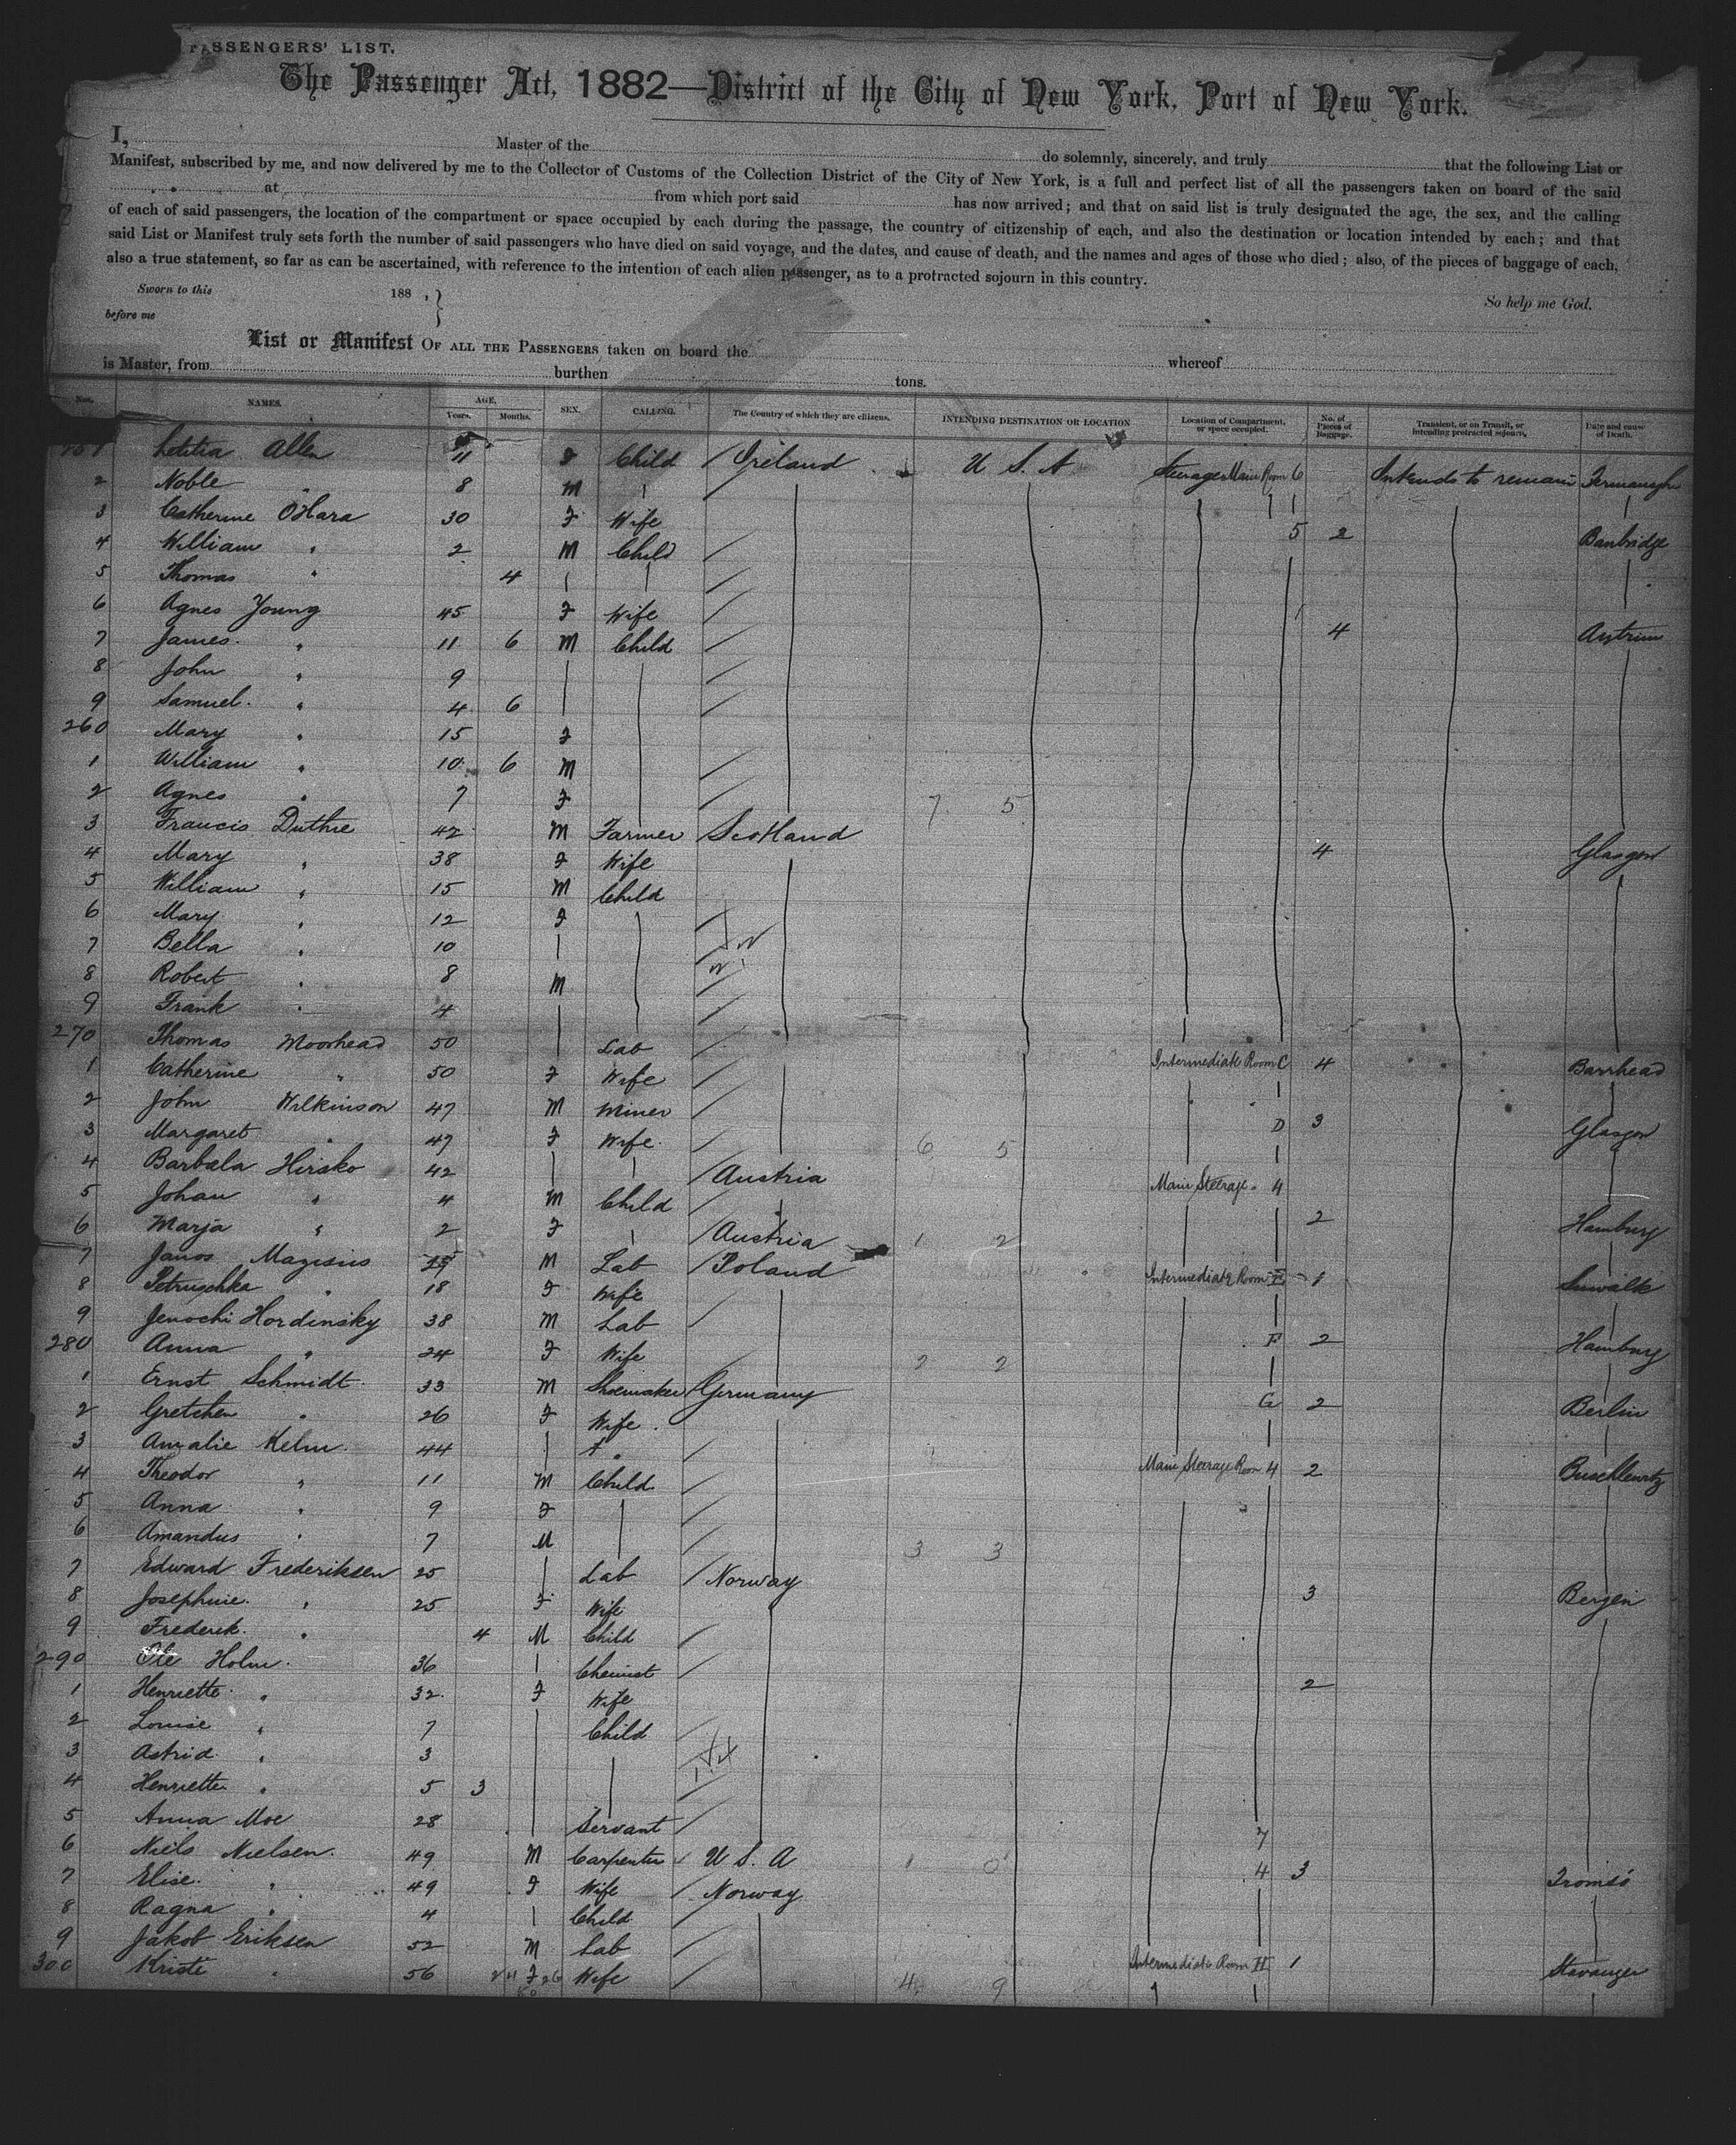 PASSENGERS' LIST.
The Passenger Act, 1882—District of the City of New York, Port of New York.
I, Master of the do solemnly, sincerely, and truly that the following List or
Manifest, subscribed by me, and now delivered by me to the Collector of Customs of the Collection District of the City of New York, is a full and perfect list of all the passengers taken on board of the said
at from which port said has now arrived; and that on said list is truly designated the age, the sex, and the calling
of each of said passengers, the location of the compartment or space occupied by each during the passage, the country of citizenship of each, and also the destination or location intended by each; and that
said List or Manifest truly sets forth the number of said passengers who have died on said voyage, and the dates, and cause of death, and the names and ages of those who died; also, of the pieces of baggage of each,
also a true statement, so far as can be ascertained, with reference to the intention of each alien passenger, as to a protracted sojourn in this country.
Sworn to this 188 , } So help me God.
before me
List or Manifest OF ALL THE PASSENGERS taken on board the whereof
is Master, from burthen tons.
Nos. NAMES. AGE. Years. Months. SEX. CALLING. The Country of which they are citizens. INTENDING DESTINATION OR LOCATION Location of Compartment, or space occupied. No. of Pieces of Baggage. Transient, or on Transit, or intending protracted sojourn. Date and cause of Death.
Letitia Allen 11 F Child / Ireland U S. A Steerage Main Room 6 Intends to remain Fermanagh
2 Noble " 8 M
3 Catherine O'Hara 30 F Wife 5 2 Banbridge
4 William " 2 M Child /
5 Thomas " 4 /
6 Agnes Young 45 F Wife / 4 Antrim
7 James " 11 6 M Child /
8 John " 9 /
9 Samuel " 4 6 /
260 Mary " 15 F
1 William " 10 6 M /
2 Agnes " 7 F / 7 5
3 Francis Duthie 42 M Farmer Scotland 4 Glasgow
4 Mary " 38 F Wife
5 William " 15 M Child
6 Mary " 12 F /
7 Bella " 10 /
8 Robert " 8 M /
9 Frank " 4 /
270 Thomas Moorhead 50 Lab / Intermediate Room C 4 Barrhead
1 Catherine " 50 F Wife /
2 John Wilkinson 47 M Miner / D 3 Glasgow
3 Margaret " 47 F Wife / 6 5
4 Barbala Hirsko 42 / Austria Main Steerage 4
5 Johan " 4 M Child / 2 Hamburg
6 Marja " 2 F / Austria 1 2
7 Janos Magisius M Lab / Poland Intermediate Room E 1 Suwalk
8 Petruschka " 18 F Wife
9 Jenochi Hordinsky 38 M Lab / F 2 Hamburg
280 Anna " 24 F Wife / 2 2
1 Ernst Schmidt 33 M Shoemaker / Germany G 2 Berlin
2 Gretchen " 26 F Wife
3 Amalie Kelm 44 / Main Steerage Room 4 2 Buschlewitz
4 Theodor " 11 M Child /
5 Anna " 9 F /
6 Amandus " 7 M / 3 3
7 Edward Frederiksen 25 Lab / Norway 3 Bergen
8 Josephine " 25 F Wife
9 Frederik " 4 M Child /
290 Ole Holm 36 Chemist / 2
1 Henriette " 32 F Wife
2 Louise " 7 Child /
3 Astrid " 3 /
4 Henriette " 5 3 /
5 Anna Moe 28 Servant / 7
6 Niels Nielsen 49 M Carpenter U S. A 1 0 4 3 Tromsö
7 Elise " 49 F Wife / Norway
8 Ragna " 4 Child /
9 Jakob Eriksen 52 M Lab / Intermediate Room H 1 Stavanger
300 Kriste " 56 F Wife / 4 9